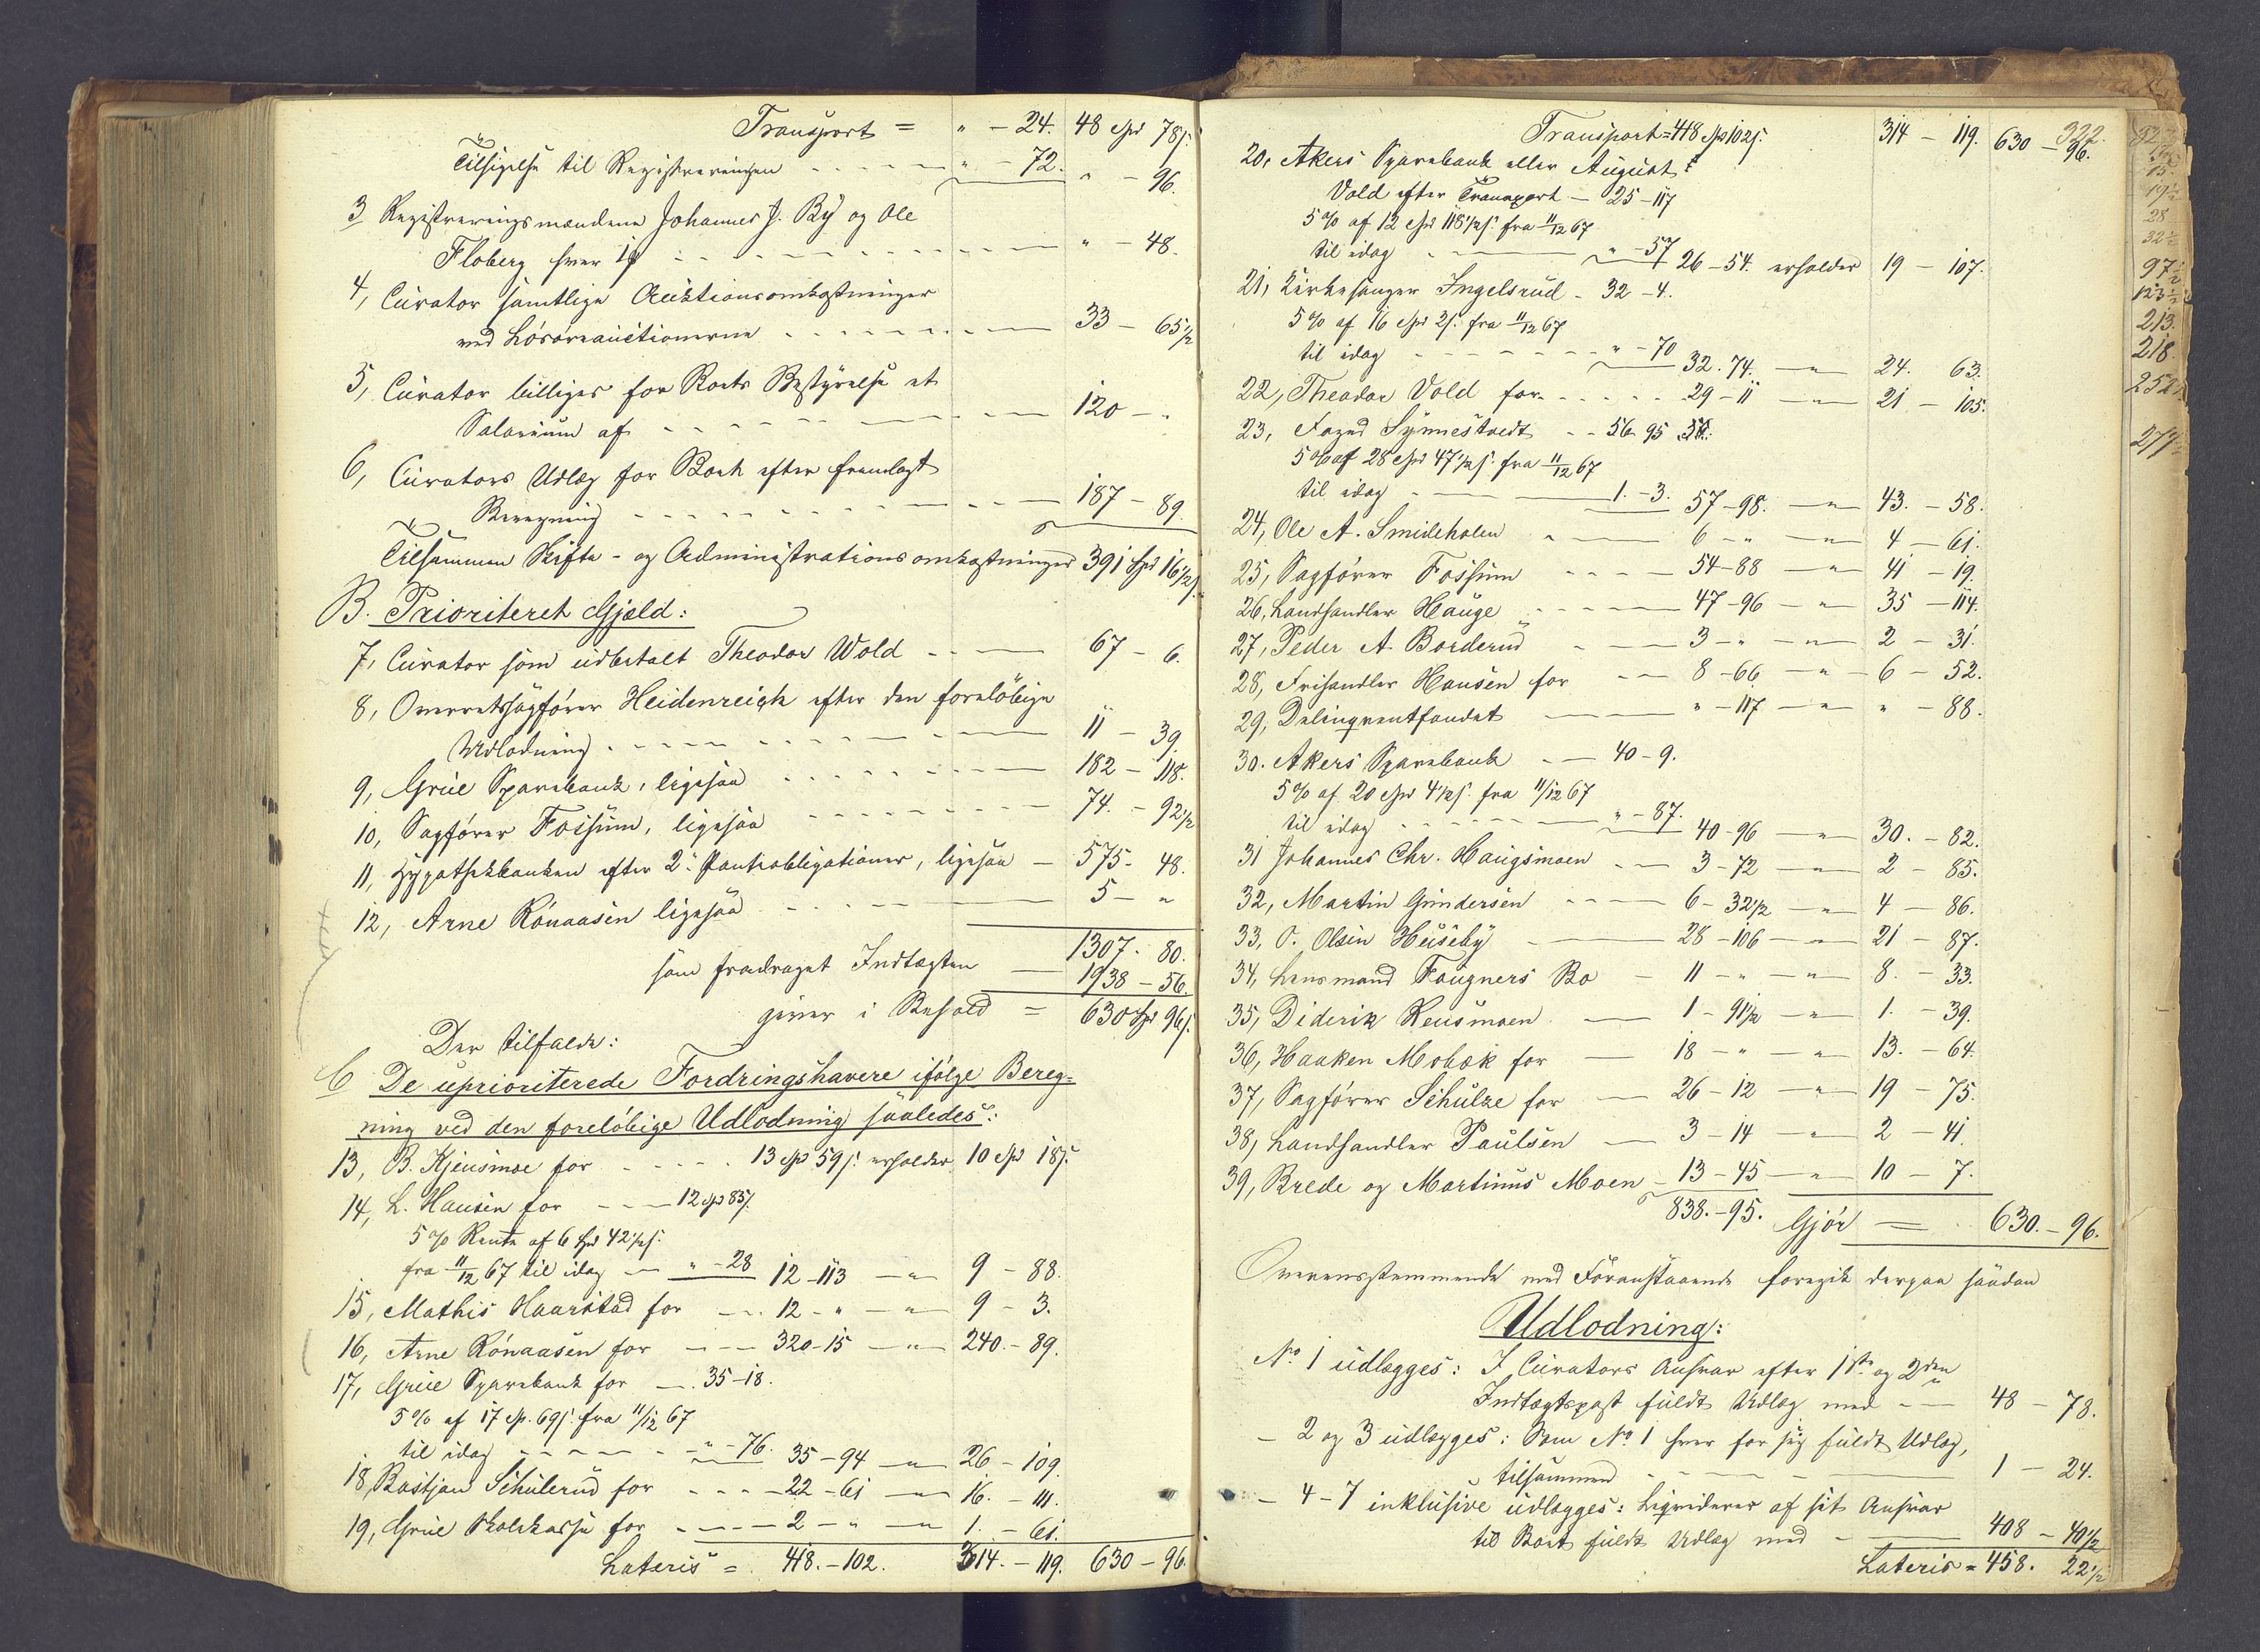 Transport = " - 24. 48 Spd 78 s.
Tilsigelse til Registreringen - - - " - 72. " - 96.
3 Registreringsmændene Johannes J. By og Ole
Floberg hver 1 - - - " - 48.
4, Curator samtlige Auktionsomkostninger
ved Løsøreauctionerne - - - 33 - 65 1/2
5, Curator billiges for Boets Bestyrelse et
Salarium af - - - 120 - "
6, Curators Udlæg for Boet efter fremlagt
Beregning - - - 187 - 89.
Tilsammen Skifte- og Administrationsomkostninger 391 Spd 16 1/2 s.
B. Prioriteret Gjæld:
7, Curator som udbetalt Theodor Wold - - 67 - 6.
8, Overretssagfører Heidenreich efter den foreløbige
Udlodning - - - 11 - 39.
9, Grue Sparebank, ligesaa - - - 182 - 118.
10, Sagfører Fossum, ligesaa - - - 74. - 92 1/2
11, Hypothekbanken efter 2de Panteobligationer, ligesaa - 575 - 48.
12, Arne Rönaasen ligesaa - - - 5 - "
1307 - 80.
som fradraget Indtægten - 1938 - 56.
giver i Behold = 630 Spd 96 s.
Der tilfalde:
C De uprioriterede Fordringshavere ifølge Bereg-
ning ved den foreløbige Udlodning saaledes:
13, B. Kjensmoe for - - - 13 Spd 59 s. erholder 10 Spd 18 s.
14, L. Hansen for - - - 12 Spd 85 s.
5 % Rente af 6 Spd 42 1/2 s.
fra 11/12 67 til idag - " - 28 12 - 113 - " - 9 - 88.
15, Mathis Haarstad for - - 12 - " - " - 9 - 3.
16, Arne Rönaasen for - - - 320 - 15 - " - 240. - 89.
17, Grue Sparebank for - 35 - 18.
5 % af 17 Sp. 69 s. fra 11/12 67
til idag - - - " - 76. 35 - 94 - " - 26 - 109.
18, Bastjan Schulerud for - - - 22 - 61 - " - 16. - 111.
19, Grue Skolekasse for - - - 2 - " - " - 1. - 61.
Lateris = 418. - 102. 314. - 119. 630 - 96.
322.
Transport = 418 Sp 102 s. 314 - 119. 630 - 96.
20, Akers Sparebank eller August
Vold efter Transport - 25 - 117
5 % af 12 Spd 118 1/2 s. fra 11/12 67
til idag - - " - 57 26 - 54. erholder 19 - 107.
21, Kirkesanger Ingelsrud - 32 - 4.
5 % af 16 Spd 2 s. fra 11/12 67
til idag - - - " - 70 32. 74. - " - 24. 63.
22, Theodor Vold for - - - 29 - 11 - " - 21 - 105.
23, Foged Synnestvedt - - 56 95
5 % af 28 Spd 47 1/2 s. fra 11/12 67
til idag - - 1. - 3. 57 - 98. - " - 43. - 58.
24, Ole A. Smideholen " - 6 - " - " - 4 - 61.
25, Sagfører Fossum - - - 54 - 88 - " - 41 - 19.
26, Landhandler Hauge - - - 47 - 96 - " - 35 - 114.
27, Peder A. Borderud - - 3 - " - " - 2 - 31.
28, Frihandler Hansen for - - 8 - 66 - " - 6 - 52.
29, Delinqventfondet - - " - 117 - " - " - 88.
30. Akers Sparebank - - 40 - 9.
5 % af 20 Spd 4 1/2 s. fra 11/12 67
til idag - - - " - 87. 40 - 96 - " - 30. - 82.
31 Johannes Chr. Haugsmoen - - 3 - 72 - " - 2 - 85.
32, Martin Gundersen - - - 6 - 32 1/2 - " - 4 - 86.
33, O. Olsen Huseby - - 28 - 106 - " - 21 - 87.
34, Lensmand Faugners Bo - 11 - " - " - 8. - 33.
35, Diderik Reusmoen - 1 - 91 1/2 - " - 1. - 39.
36, Haaken Mobæk for - 18 - " - " - 13. - 64.
37, Sagfører Schulze for - 26 - 12 - " - 19 - 75.
38, Landhandler Paulsen - 3 - 14 - " - 2 - 41.
39, Brede og Martinus Moen - 13 - 45 - " - 10 - 7.
838. - 95. Gjør = 630. - 96.
Overensstemmende med Foranstaaende foregik derpaa saadan
Udlodning:
No 1 udlægges: I Curators Ansvar efter 1ste og 2den
Indtægtspost fuldt Udlæg med - - 48 - 78.
- 2 og 3 udlægges: Som No 1 hver for sig fuldt Udlæg,
tilsammen - - - 1 - 24.
- 4 - 7 inklusive udlægges: Liqviderer af sit Ansvar
til Boet fuldt Udlæg med - - 408 - 40 1/2
Lateris = 458. 22 1/2